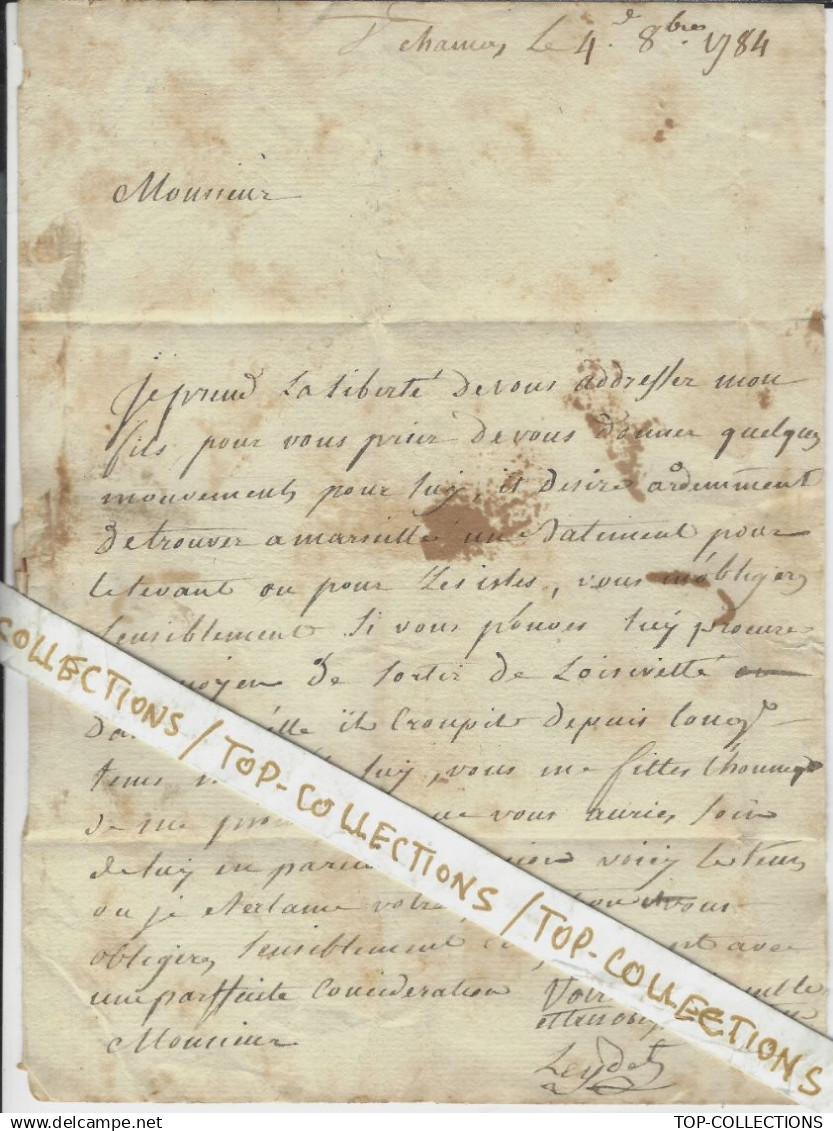 St chamas Le 4.e 8bres 1784
Monsieur
Je prend La Liberté de vous addresser mon
fils pour vous prier de vous donner quelques
mouvements pour luy, il desire ardemment
de trouver a marseille un Batiment pour
le levant ou pour Les isles, vous m'obligeres
sensiblement Si vous pouves luy procurer
moyen de sortir de Loisiveté
il Croupit depuis long
tems luy, vous me fittes l'honneur
de me vous auries soin
de luy en voicy le tems
ou je reclame votre vous
obligeres sensiblement avec
une parffaite Consideration Votre
Monsieur
Leydet
COLLECTIONS / TOP-COLLECTIONS / TOP-COLLECTIONS
TOP-COLLECTIONS